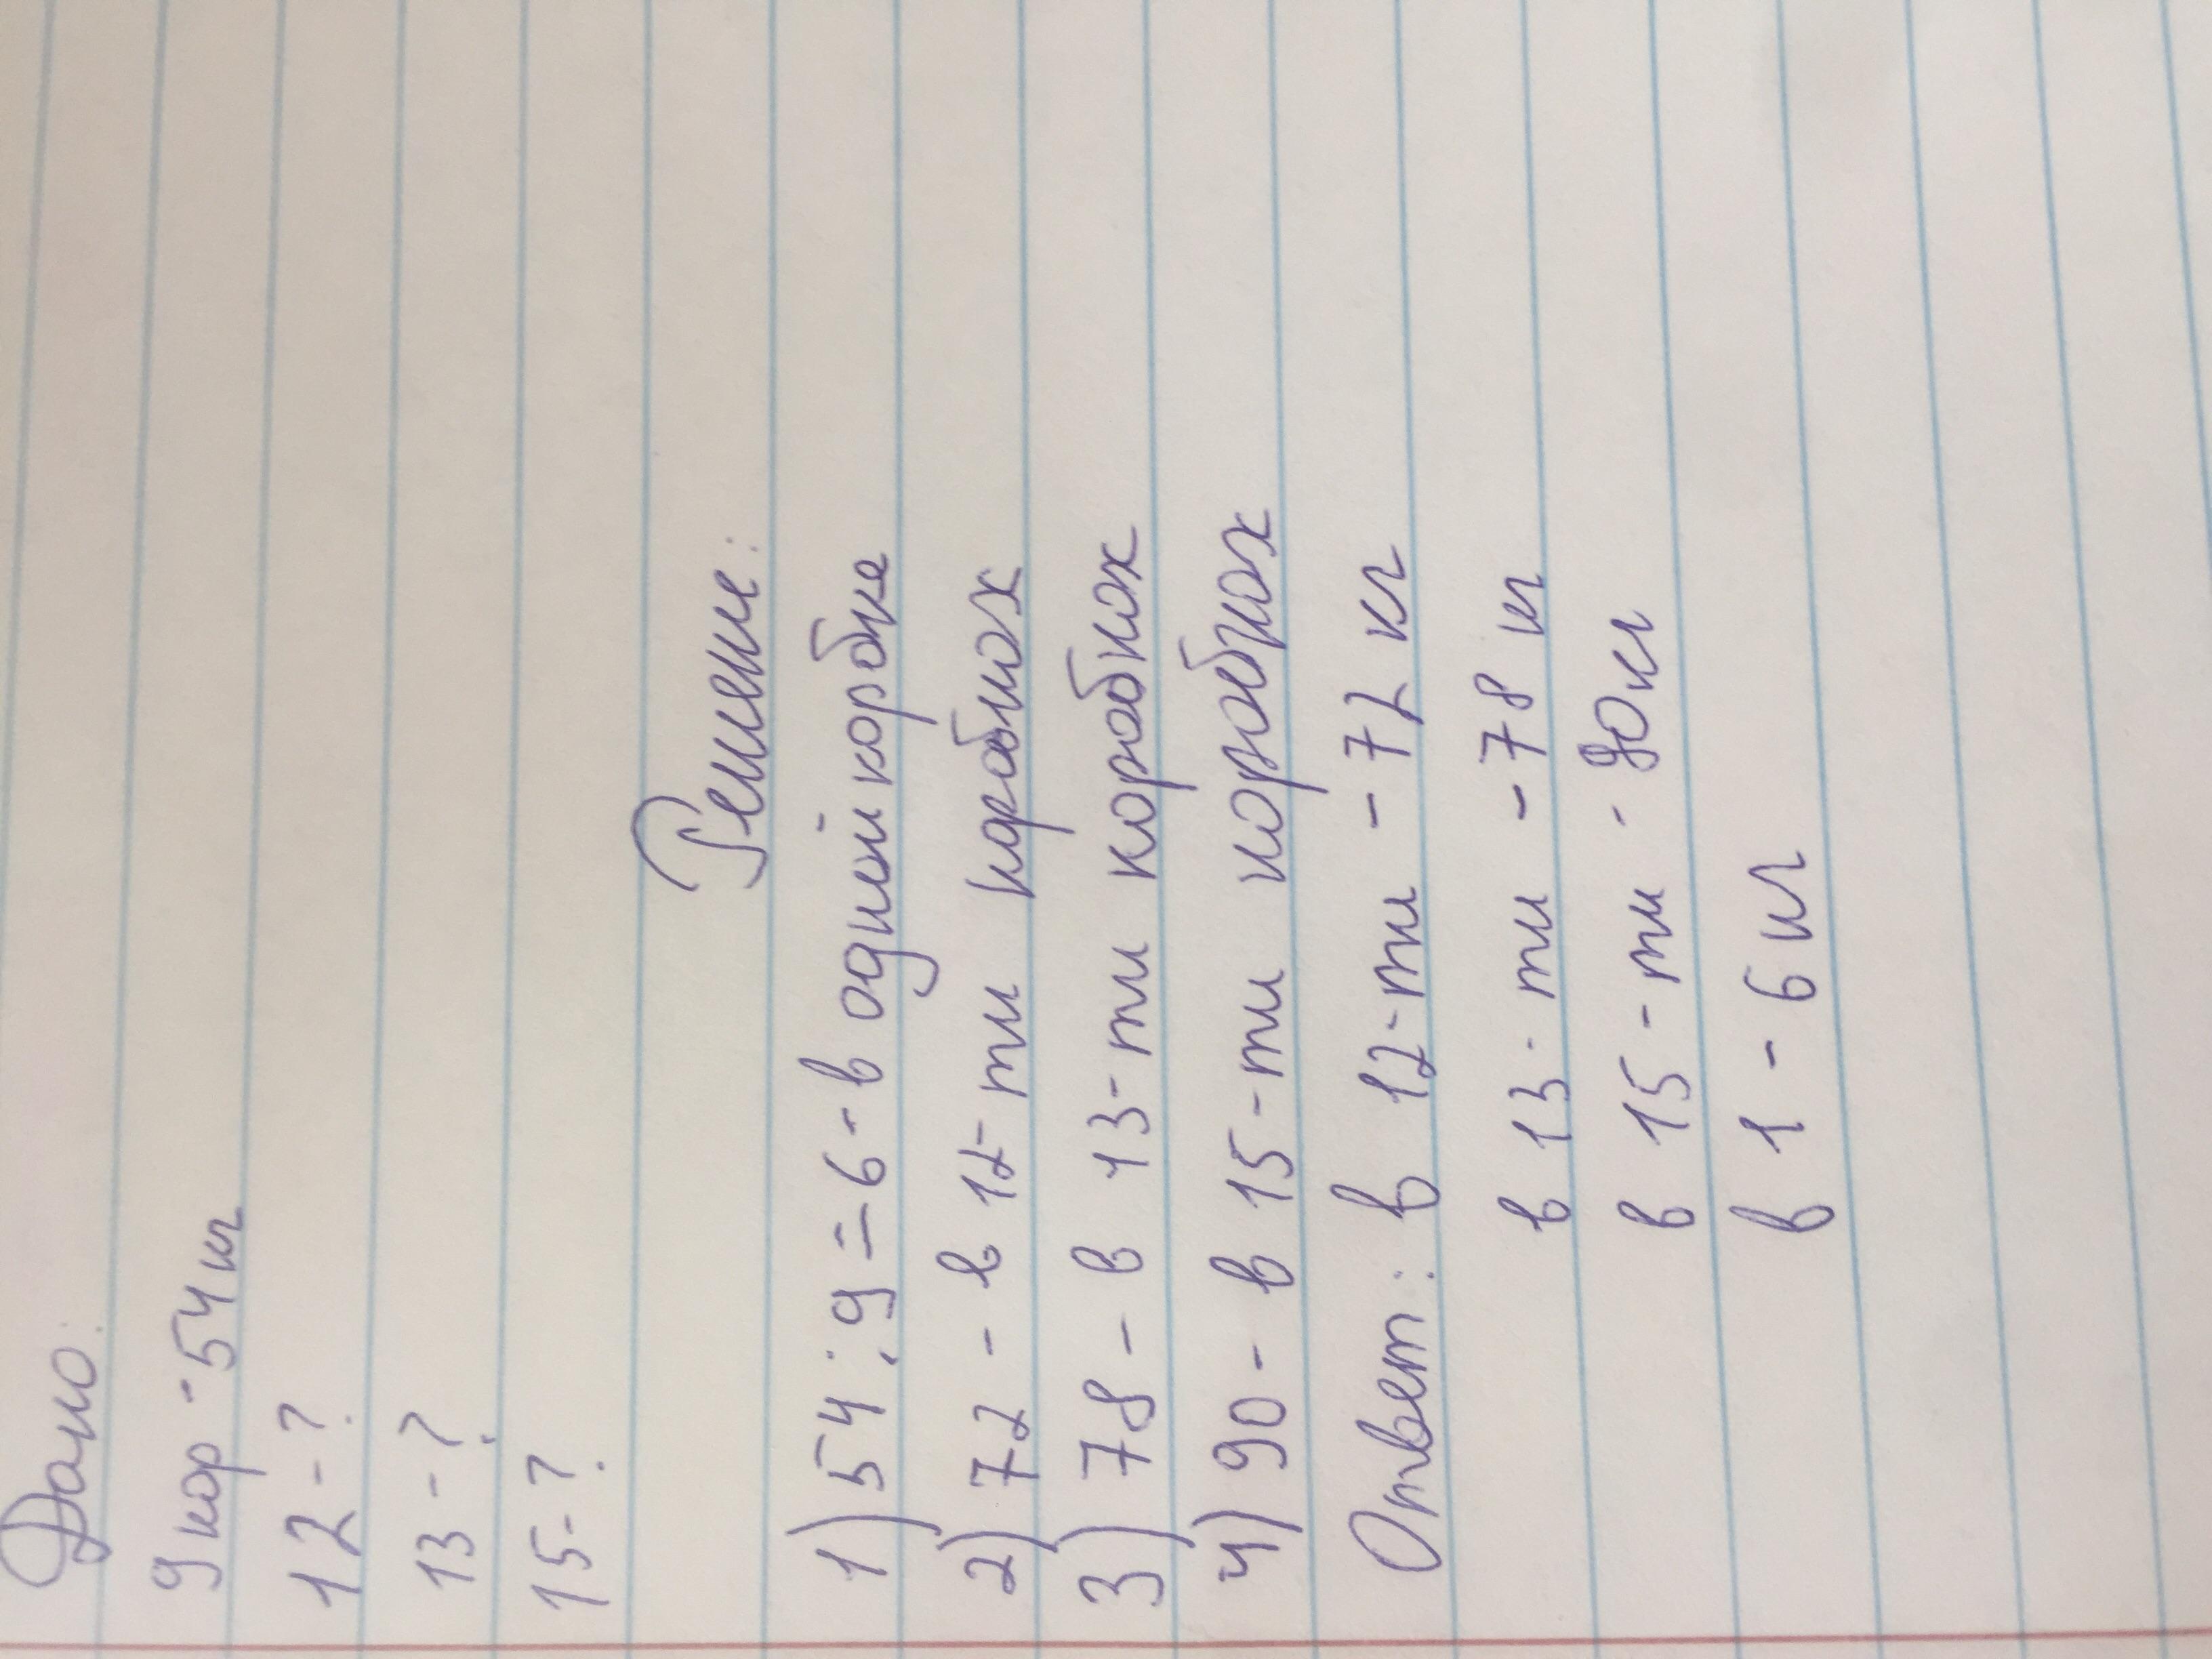 Дано:
9 кор - 54 кг
12 - ?
13 - ?
15 - ?
Решение:
1) 54 : 9 = 6 - в одной коробке
2) 72 - в 12-ти коробках
3) 78 - в 13-ти коробках
4) 90 - в 15-ти коробках
Ответ: в 12-ти - 72 кг
в 13-ти - 78 кг
в 15-ти - 90 кг
в 1 - 6 кг